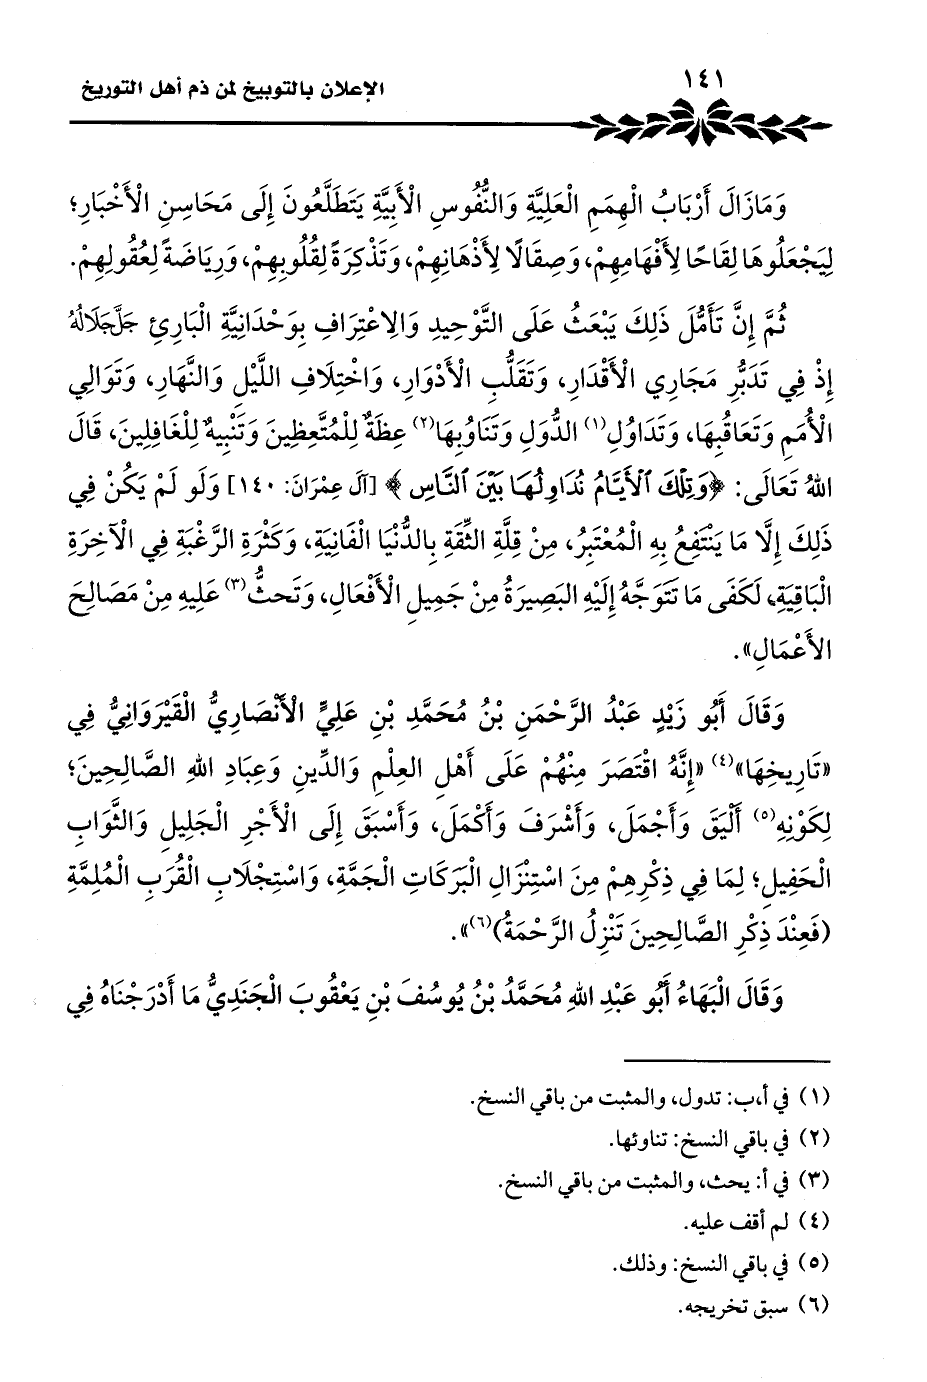 ١٤١
الإعلان بالتوبيخ لمن ذم أهل التوريخ
وَمَازَالَ أَرْبَابُ الْهِمَمِ الْعَلِيَّةِ وَالنُّفُوسِ الْأَبِيَّةِ يَتَطَلَّعُونَ إِلَى مَحَاسِنِ الْأَخْبَارِ؛
لِيَجْعَلُوهَا لِقَاحًا لِأَفْهَامِهِمْ، وَصِقَالًا لِأَذْهَانِهِمْ، وَتَذْكِرَةً لِقُلُوبِهِمْ، وَرِيَاضَةً لِعُقُولِهِمْ.
ثُمَّ إِنَّ تَأَمُّلَ ذَلِكَ يَبْعَثُ عَلَى التَّوْحِيدِ وَالِاعْتِرَافِ بِوَحْدَانِيَّةِ الْبَارِئِ جَلَّ جَلَالُهُ
إِذْ فِي تَدَبُّرِ مَجَارِي الْأَقْدَارِ، وَتَقَلُّبِ الْأَدْوَارِ، وَاخْتِلَافِ اللَّيْلِ وَالنَّهَارِ، وَتَوَالِي
الْأُمَمِ وَتَعَاقُبِهَا، وَتَدَاوُلِ(١) الدُّوَلِ وَتَنَاوُبِهَا(٢) عِظَةٌ لِلْمُتَّعِظِينَ وَتَنْبِيهٌ لِلْغَافِلِينَ، قَالَ
اللهُ تَعَالَى: ﴿وَتِلْكَ ٱلْأَيَّامُ نُدَاوِلُهَا بَيْنَ ٱلنَّاسِ﴾ [آل عِمْرَانَ: ١٤٠] وَلَو لَمْ يَكُنْ فِي
ذَلِكَ إِلَّا مَا يَنْتَفِعُ بِهِ الْمُعْتَبِرُ، مِنْ قِلَّةِ الثِّقَةِ بِالدُّنْيَا الْفَانِيَةِ، وَكَثْرَةِ الرَّغْبَةِ فِي الْآخِرَةِ
الْبَاقِيَةِ، لَكَفَى مَا تَتَوَجَّهُ إِلَيْهِ البَصِيرَةُ مِنْ جَمِيلِ الْأَفْعَالِ، وَتَحثُّ(٣) عَلَيهِ مِنْ مَصَالِحَ
الأَعْمَالِ».
وَقَالَ أَبُو زَيْدٍ عَبْدُ الرَّحْمَنِ بْنُ مُحَمَّدِ بْنِ عَلِيٍّ الْأَنْصَارِيُّ الْقَيْرَوَانِيُّ فِي
«تَارِيخِهَا»(٤) «إِنَّهُ اقْتَصَرَ مِنْهُمْ عَلَى أَهْلِ العِلْمِ وَالدِّينِ وَعِبَادِ اللهِ الصَّالِحِينَ؛
لِكَوْنِهِ(٥) أَلْيَقَ وَأَجْمَلَ، وَأَشْرَفَ وَأَكْمَلَ، وَأَسْبَقَ إِلَى الْأَجْرِ الْجَلِيلِ وَالثَّوَابِ
الْحَفِيلِ؛ لِمَا فِي ذِكْرِهِمْ مِنَ اسْتِنْزَالِ الْبَرَكَاتِ الْجَمَّةِ، وَاسْتِجْلَابِ الْقُرَبِ الْمُلِمَّةِ
(فَعِنْدَ ذِكْرِ الصَّالِحِينَ تَنْزِلُ الرَّحْمَةُ)(٦)».
وَقَالَ الْبَهَاءُ أَبُو عَبْدِ اللهِ مُحَمَّدُ بْنُ يُوسُفَ بْنِ يَعْقُوبَ الْجَنَدِيُّ مَا أَدْرَجْنَاهُ فِي
(١) في أ،ب: تدول، والمثبت من باقي النسخ.
(٢) في باقي النسخ: تناوئها.
(٣) في أ: يحث، والمثبت من باقي النسخ.
(٤) لم أقف عليه.
(٥) في باقي النسخ: وذلك.
(٦) سبق تخريجه.